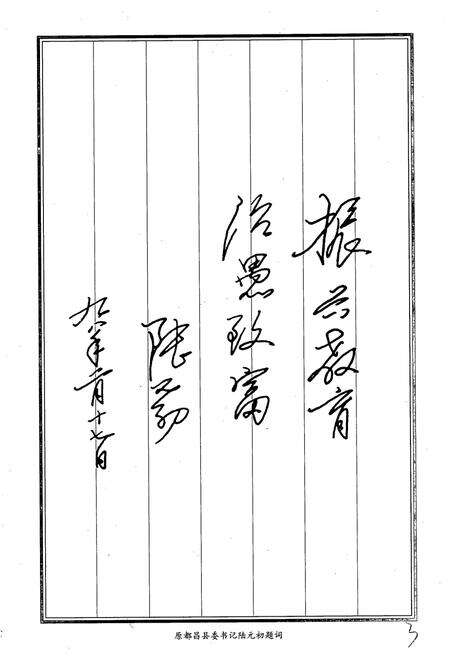 振兴教育
治愚致富
陆元初
九八年二月十七日
原都昌县委书记陆元初题词
3